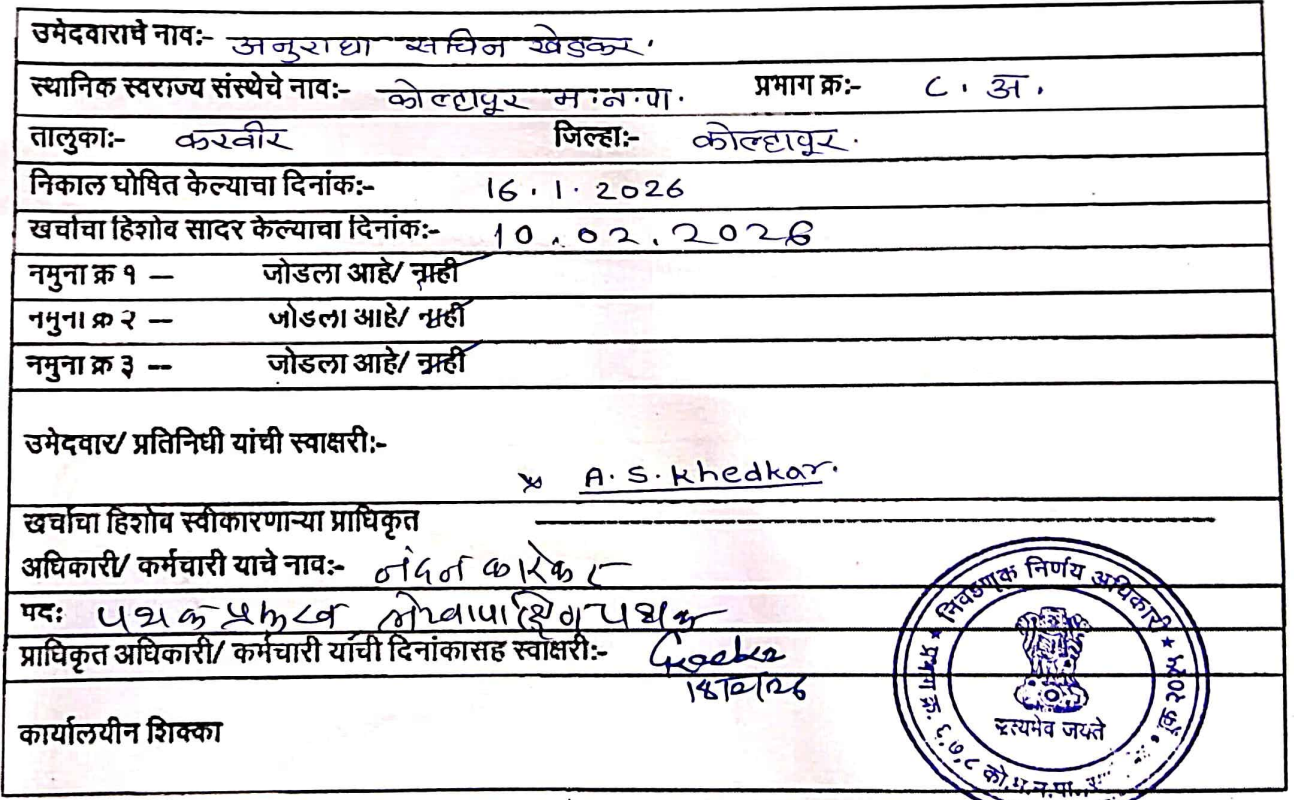 उमेदवाराचे नाव:- अनुराधा सचिन खेडकर.
स्थानिक स्वराज्य संस्थेचे नाव:- कोल्हापूर म.न.पा. प्रभाग क्र:- ८. अ.
तालुका:- करवीर जिल्हा:- कोल्हापूर.
निकाल घोषित केल्याचा दिनांक:- 16.1.2026
खर्चाचा हिशोब सादर केल्याचा दिनांक:- 10.02.2026
नमुना क्र १ — जोडला आहे/ नाही
नमुना क्र २ — जोडला आहे/ नाही
नमुना क्र ३ -- जोडला आहे/ नाही
उमेदवार/ प्रतिनिधी यांची स्वाक्षरी:-
A. S. Khedkar.
खर्चाचा हिशोब स्वीकारणाऱ्या प्राधिकृत
अधिकारी/ कर्मचारी याचे नाव:- नंदन कारेकर
पद: पथक प्रमुख लेखापरिक्षण पथक
प्राधिकृत अधिकारी/ कर्मचारी यांची दिनांकासह स्वाक्षरी:-
कार्यालयीन शिक्का
निवडणूक निर्णय अधिकारी
सत्यमेव जयते
को.म.न.पा.